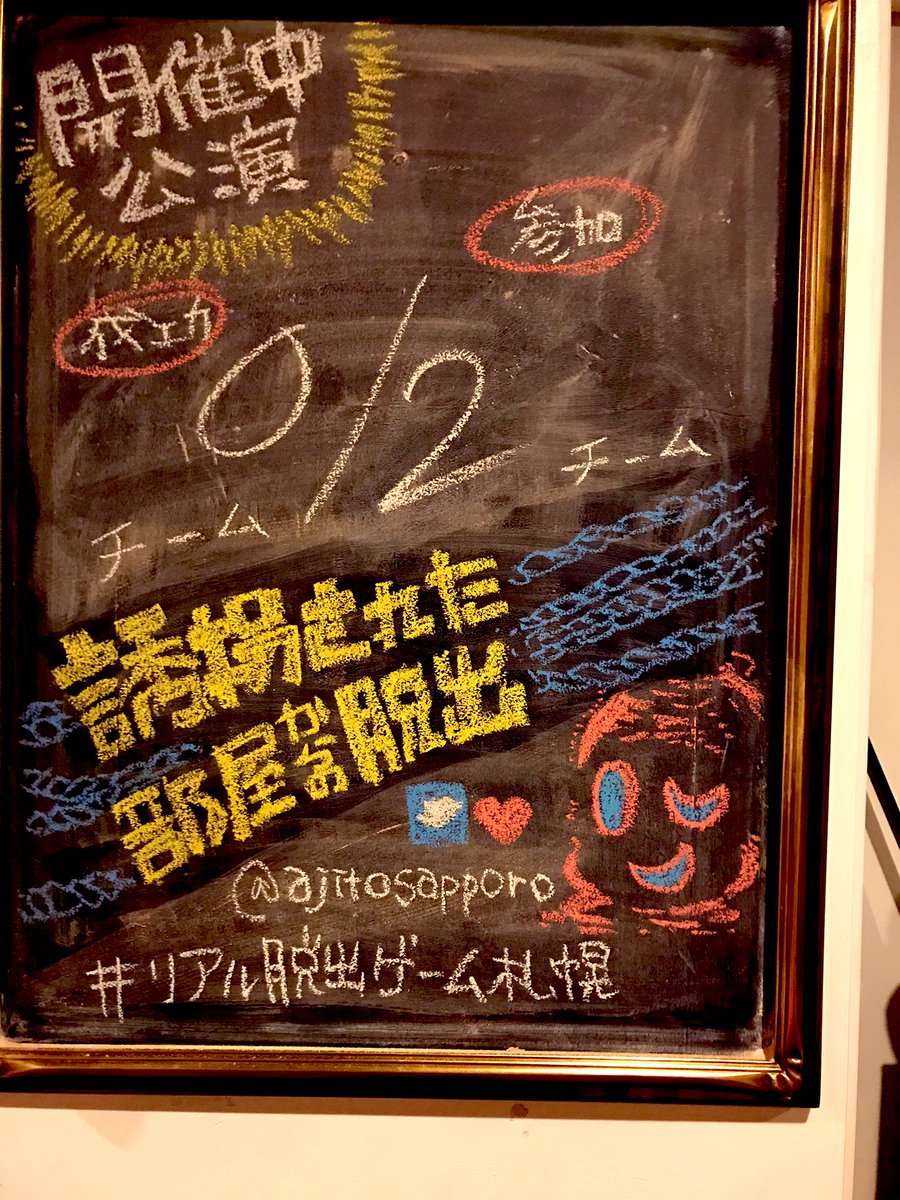 開催中
公演
参加
成功
0/2
チーム
チーム
誘拐された
部屋からの脱出
@ajitosapporo
#リアル脱出ゲーム札幌